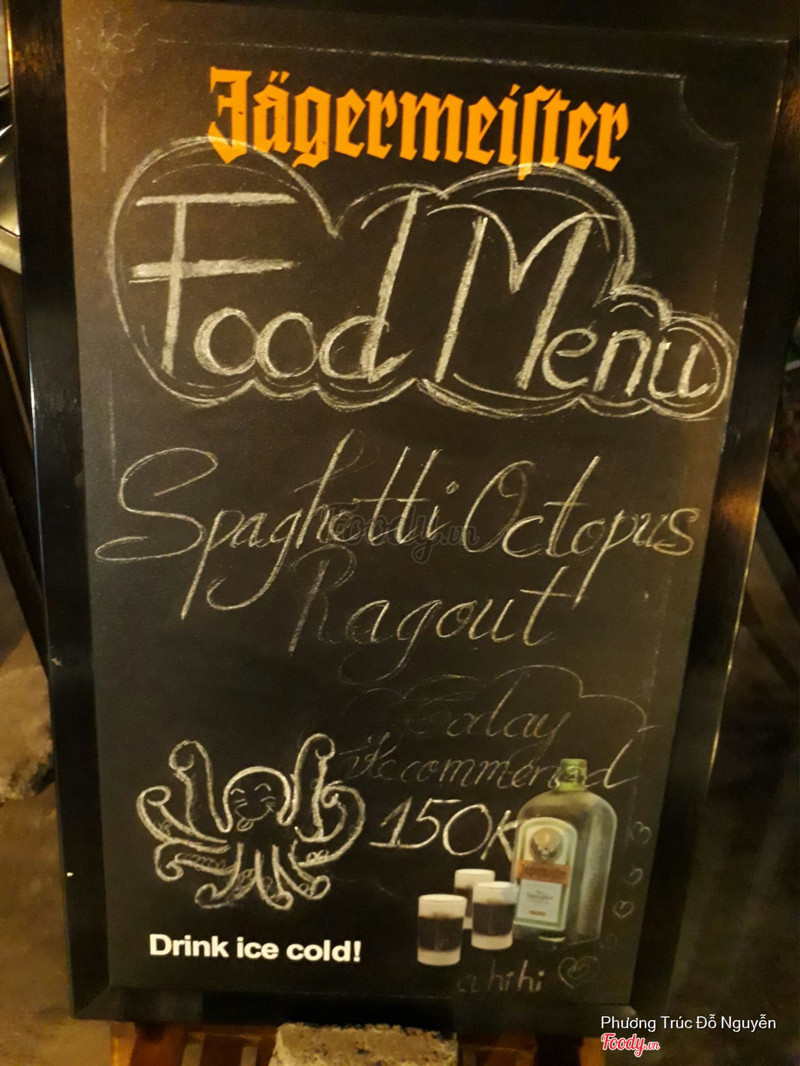 Jägermeister
Food Menu
Spaghetti Octopus
Ragout
Today
Recommened
150K
Drink ice cold!
ahihi
Phương Trúc Đỗ Nguyễn
Foody.vn
Foody.vn